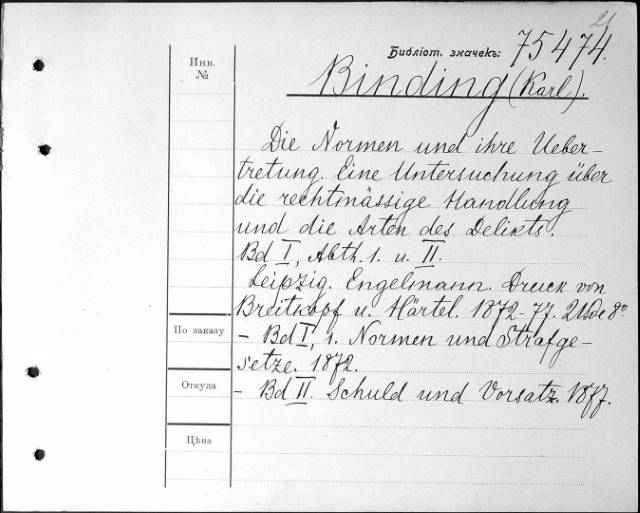 21
Библіот. значекъ: 75474.
Инв.
№
Binding (Karl).
Die Normen und ihre Ueber-
tretung. Eine Untersuchung über
die rechtmässige Handlung
und die Arten des Delikts.
Bd I, Abth. 1. u. II.
Leipzig. Engelmann. Druck von
Breitkopf u. Härtel. 1872-77. 2 Bde 8°
По заказу
- Bd I, 1. Normen und Strafge-
setze. 1872.
Откуда
- Bd II. Schuld und Vorsatz. 1877.
Цѣна